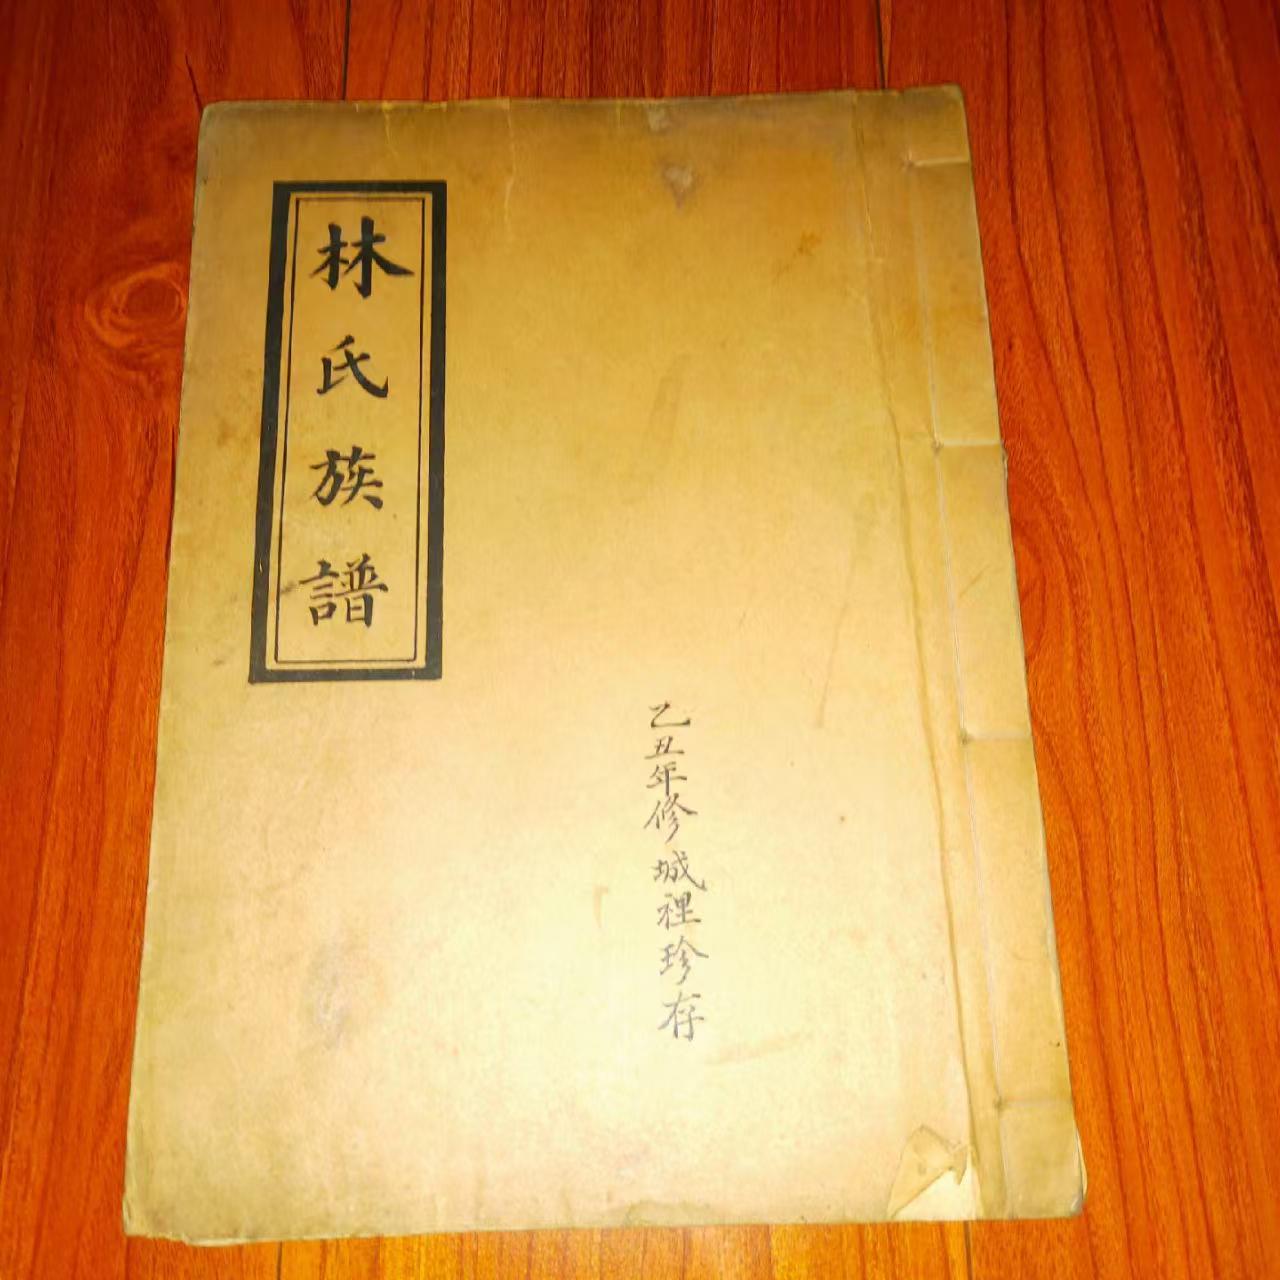 林氏族譜
乙丑年修城裡珍存